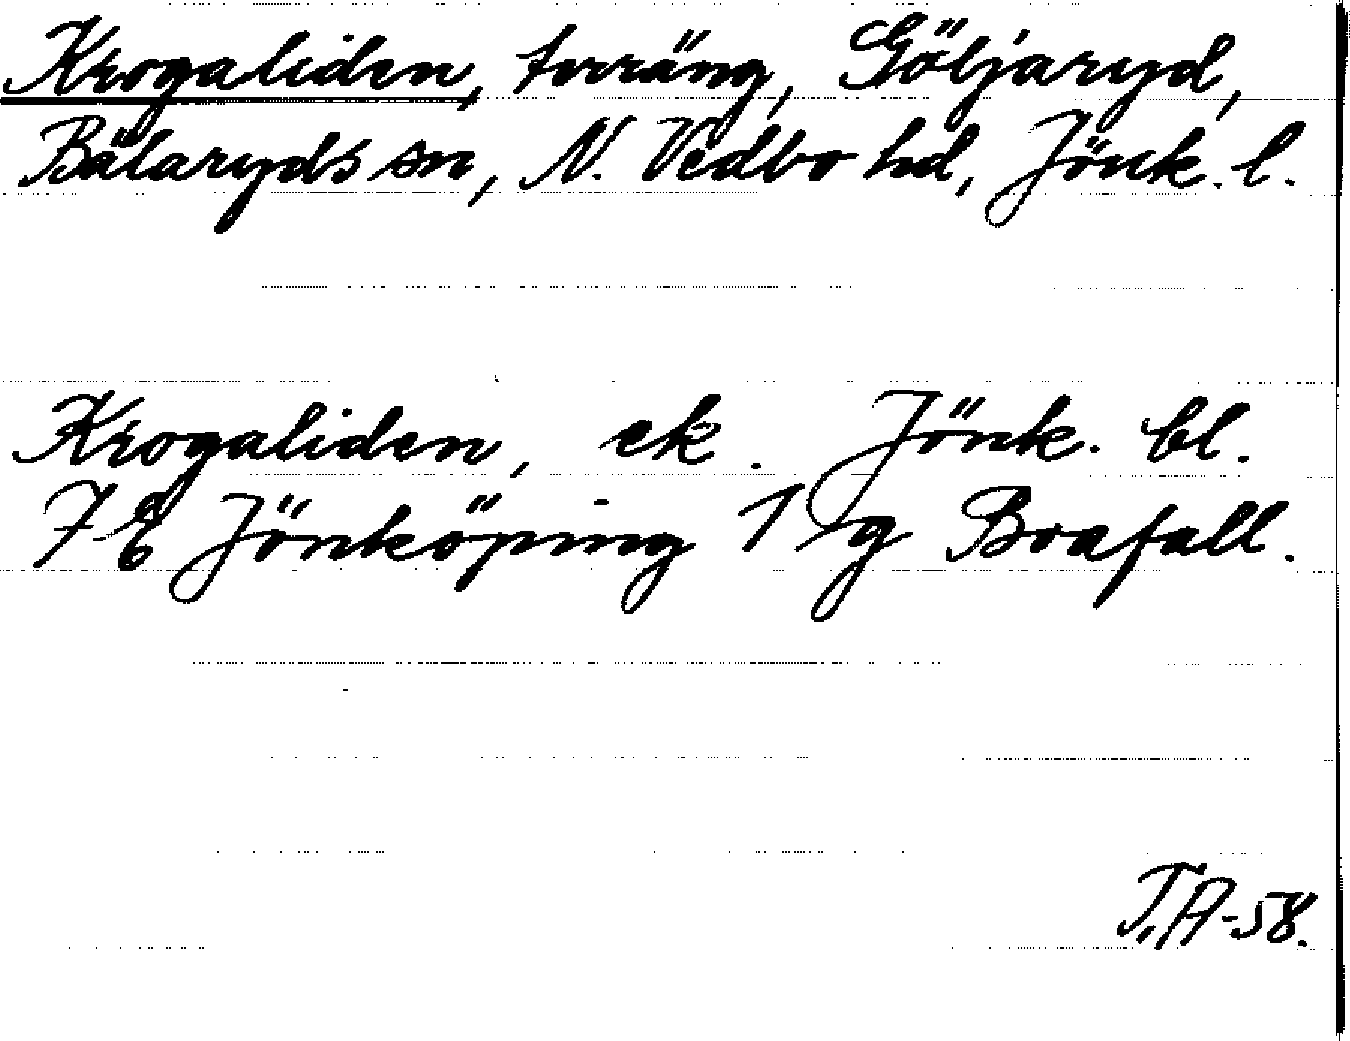 Krogaliden, torräng, Göljaryd,
Bälaryds sn, N. Vedbo hd, Jönk. l.
Krogaliden, ek. Jönk. bl.
7 E Jönköping 1 g Boafall.
T.A-58.